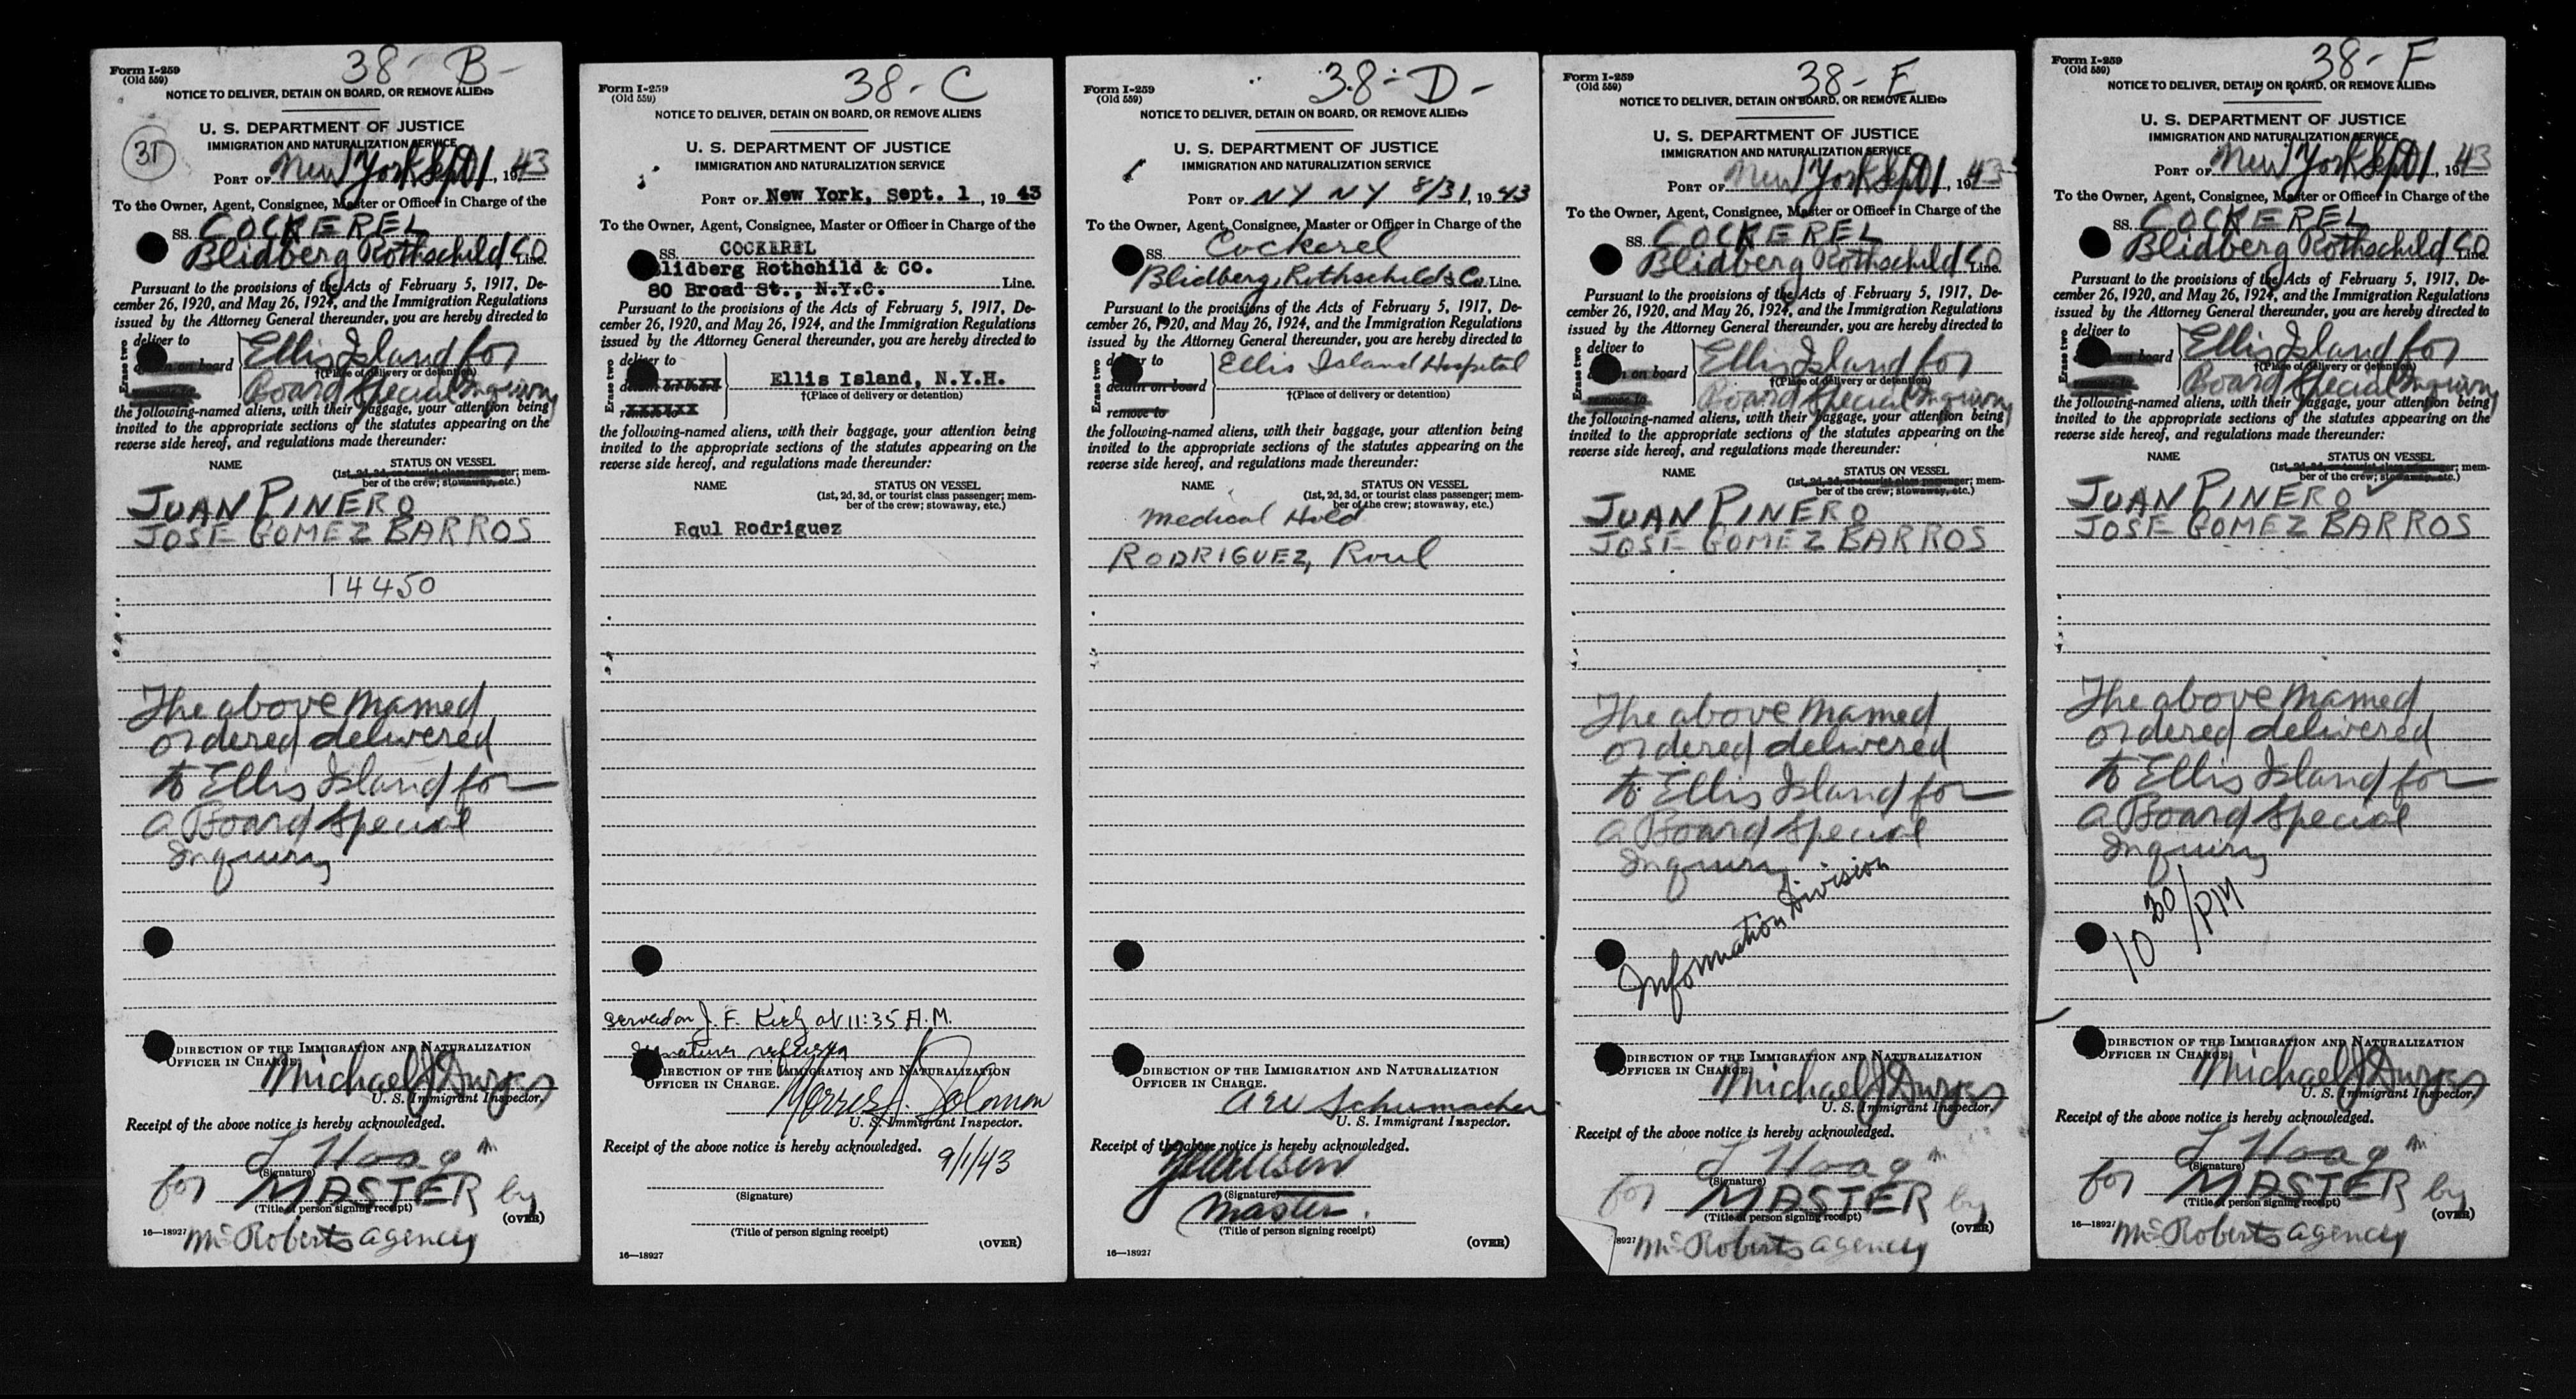 38- B-
Form I-259
(Old 559)
NOTICE TO DELIVER, DETAIN ON BOARD, OR REMOVE ALIENS
U. S. DEPARTMENT OF JUSTICE
IMMIGRATION AND NATURALIZATION SERVICE
31
PORT OF New York Sept 1, 1943
To the Owner, Agent, Consignee, Master or Officer in Charge of the
SS. COCKEREL
Blidberg Rothschild Co Line.
Pursuant to the provisions of the Acts of February 5, 1917, De-
cember 26, 1920, and May 26, 1924, and the Immigration Regulations
issued by the Attorney General thereunder, you are hereby directed to
Erase two
deliver to
on board
Ellis Island for
†(Place of delivery or detention)
Board Special Inquiry
the following-named aliens, with their baggage, your attention being
invited to the appropriate sections of the statutes appearing on the
reverse side hereof, and regulations made thereunder:
NAME STATUS ON VESSEL
(1st, 2d, 3d, or tourist class passenger; mem-
ber of the crew; stowaway, etc.)
JUAN PINERO
JOSE GOMEZ BARROS
14450
The above named
ordered delivered
to Ellis Island for
a Board Special
Inquiry
DIRECTION OF THE IMMIGRATION AND NATURALIZATION
OFFICER IN CHARGE.
Michael J
U. S. Immigrant Inspector.
Receipt of the above notice is hereby acknowledged.
L Haag
(Signature)
for MASTER by
(Title of person signing receipt)
(OVER)
16—18927
McRoberts agency
38- C
Form I-259
(Old 559)
NOTICE TO DELIVER, DETAIN ON BOARD, OR REMOVE ALIENS
U. S. DEPARTMENT OF JUSTICE
IMMIGRATION AND NATURALIZATION SERVICE
PORT OF New York, Sept. 1, 1943
To the Owner, Agent, Consignee, Master or Officer in Charge of the
SS. COCKEREL
Blidberg Rothchild & Co.
80 Broad St., N.Y.C. Line.
Pursuant to the provisions of the Acts of February 5, 1917, De-
cember 26, 1920, and May 26, 1924, and the Immigration Regulations
issued by the Attorney General thereunder, you are hereby directed to
Erase two
deliver to
detain on board
remove to
Ellis Island, N.Y.H.
†(Place of delivery or detention)
the following-named aliens, with their baggage, your attention being
invited to the appropriate sections of the statutes appearing on the
reverse side hereof, and regulations made thereunder:
NAME STATUS ON VESSEL
(1st, 2d, 3d, or tourist class passenger; mem-
ber of the crew; stowaway, etc.)
Raul Rodriguez
Served on J. F. Kiely at 11:35 A.M.
Signature refused
DIRECTION OF THE IMMIGRATION AND NATURALIZATION
OFFICER IN CHARGE.
Morris A. Solomon
U. S. Immigrant Inspector.
Receipt of the above notice is hereby acknowledged.
9/1/43
(Signature)
(Title of person signing receipt)
(OVER)
16—18927
38- D-
Form I-259
(Old 559)
NOTICE TO DELIVER, DETAIN ON BOARD, OR REMOVE ALIENS
U. S. DEPARTMENT OF JUSTICE
IMMIGRATION AND NATURALIZATION SERVICE
PORT OF NY NY 8/31, 1943
To the Owner, Agent, Consignee, Master or Officer in Charge of the
SS. Cockerel
Blidberg, Rothschild & Co Line.
Pursuant to the provisions of the Acts of February 5, 1917, De-
cember 26, 1920, and May 26, 1924, and the Immigration Regulations
issued by the Attorney General thereunder, you are hereby directed to
Erase two
deliver to
detain on board
remove to
Ellis Island Hospital
†(Place of delivery or detention)
the following-named aliens, with their baggage, your attention being
invited to the appropriate sections of the statutes appearing on the
reverse side hereof, and regulations made thereunder:
NAME STATUS ON VESSEL
(1st, 2d, 3d, or tourist class passenger; mem-
ber of the crew; stowaway, etc.)
Medical Hold
RODRIGUEZ, Roul
DIRECTION OF THE IMMIGRATION AND NATURALIZATION
OFFICER IN CHARGE.
Schumacher
U. S. Immigrant Inspector.
Receipt of the above notice is hereby acknowledged.
(Signature)
Master.
(Title of person signing receipt)
(OVER)
16—18927
38- E
Form I-259
(Old 559)
NOTICE TO DELIVER, DETAIN ON BOARD, OR REMOVE ALIENS
U. S. DEPARTMENT OF JUSTICE
IMMIGRATION AND NATURALIZATION SERVICE
PORT OF New York Sept 1, 1943
To the Owner, Agent, Consignee, Master or Officer in Charge of the
SS. COCKEREL
Blidberg Rothschild Co Line.
Pursuant to the provisions of the Acts of February 5, 1917, De-
cember 26, 1920, and May 26, 1924, and the Immigration Regulations
issued by the Attorney General thereunder, you are hereby directed to
Erase two
deliver to
on board
remove to
Ellis Island for
†(Place of delivery or detention)
Board Special Inquiry
the following-named aliens, with their baggage, your attention being
invited to the appropriate sections of the statutes appearing on the
reverse side hereof, and regulations made thereunder:
NAME STATUS ON VESSEL
(1st, 2d, 3d, or tourist class passenger; mem-
ber of the crew; stowaway, etc.)
JUAN PINERO
JOSE GOMEZ BARROS
The above named
ordered delivered
to Ellis Island for
a Board Special
Inquiry
Information Division
DIRECTION OF THE IMMIGRATION AND NATURALIZATION
OFFICER IN CHARGE.
Michael J
U. S. Immigrant Inspector.
Receipt of the above notice is hereby acknowledged.
L Haag
(Signature)
for MASTER by
(Title of person signing receipt)
(OVER)
8927
McRoberts agency
38- F
Form I-259
(Old 559)
NOTICE TO DELIVER, DETAIN ON BOARD, OR REMOVE ALIENS
U. S. DEPARTMENT OF JUSTICE
IMMIGRATION AND NATURALIZATION SERVICE
PORT OF New York Sept 1, 1943
To the Owner, Agent, Consignee, Master or Officer in Charge of the
SS. COCKEREL
Blidberg Rothschild Co Line.
Pursuant to the provisions of the Acts of February 5, 1917, De-
cember 26, 1920, and May 26, 1924, and the Immigration Regulations
issued by the Attorney General thereunder, you are hereby directed to
Erase two
deliver to
on board
Ellis Island for
†(Place of delivery or detention)
Board Special Inquiry
the following-named aliens, with their baggage, your attention being
invited to the appropriate sections of the statutes appearing on the
reverse side hereof, and regulations made thereunder:
NAME STATUS ON VESSEL
(1st, 2d, 3d, or tourist class passenger; mem-
ber of the crew; stowaway, etc.)
JUAN PINERO
JOSE GOMEZ BARROS
The above named
ordered delivered
to Ellis Island for
a Board Special
Inquiry
10 30/PM
DIRECTION OF THE IMMIGRATION AND NATURALIZATION
OFFICER IN CHARGE.
Michael J
U. S. Immigrant Inspector.
Receipt of the above notice is hereby acknowledged.
L Haag
(Signature)
for MASTER by
(Title of person signing receipt)
(OVER)
16—1892
McRoberts agency